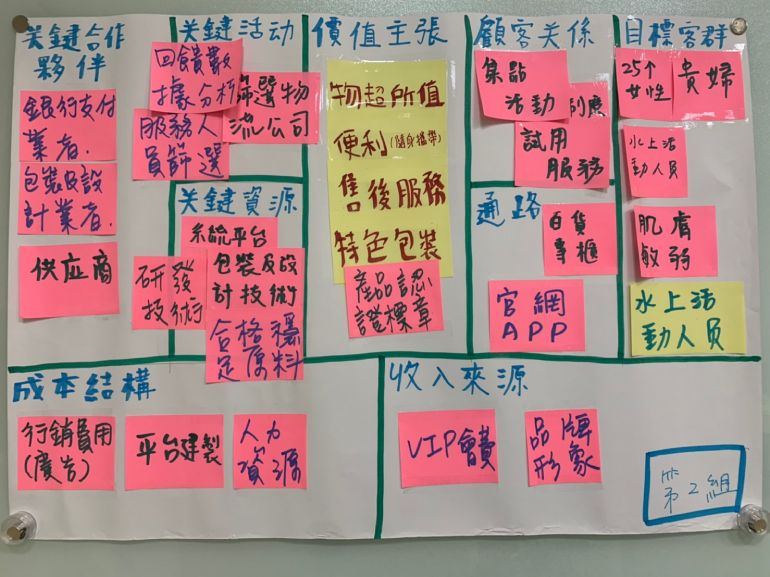 关鍵合作
夥伴
銀行支付
業者.
包裝及設
計業者.
供应商
关鍵活动
回饋數
據分析
篩選物
流公司
服務人
員篩選
关鍵資源
系統平台
研發
技術
包裝及設
計技術
合格穩
定原料
價值主張
物超所值
便利(隨身攜帶)
售後服務
特色包裝
產品認
證標章
顧客关係
集點
活動
試用
服務
通路
百貨
專櫃
官網
APP
目標客群
25个
女性
貴婦
水上活
動人員
肌膚
敏弱
水上活
動人员
成本结構
行銷費用
(廣告)
平台建製
人力
資源
收入來源
VIP會費
品牌
形象
第2組